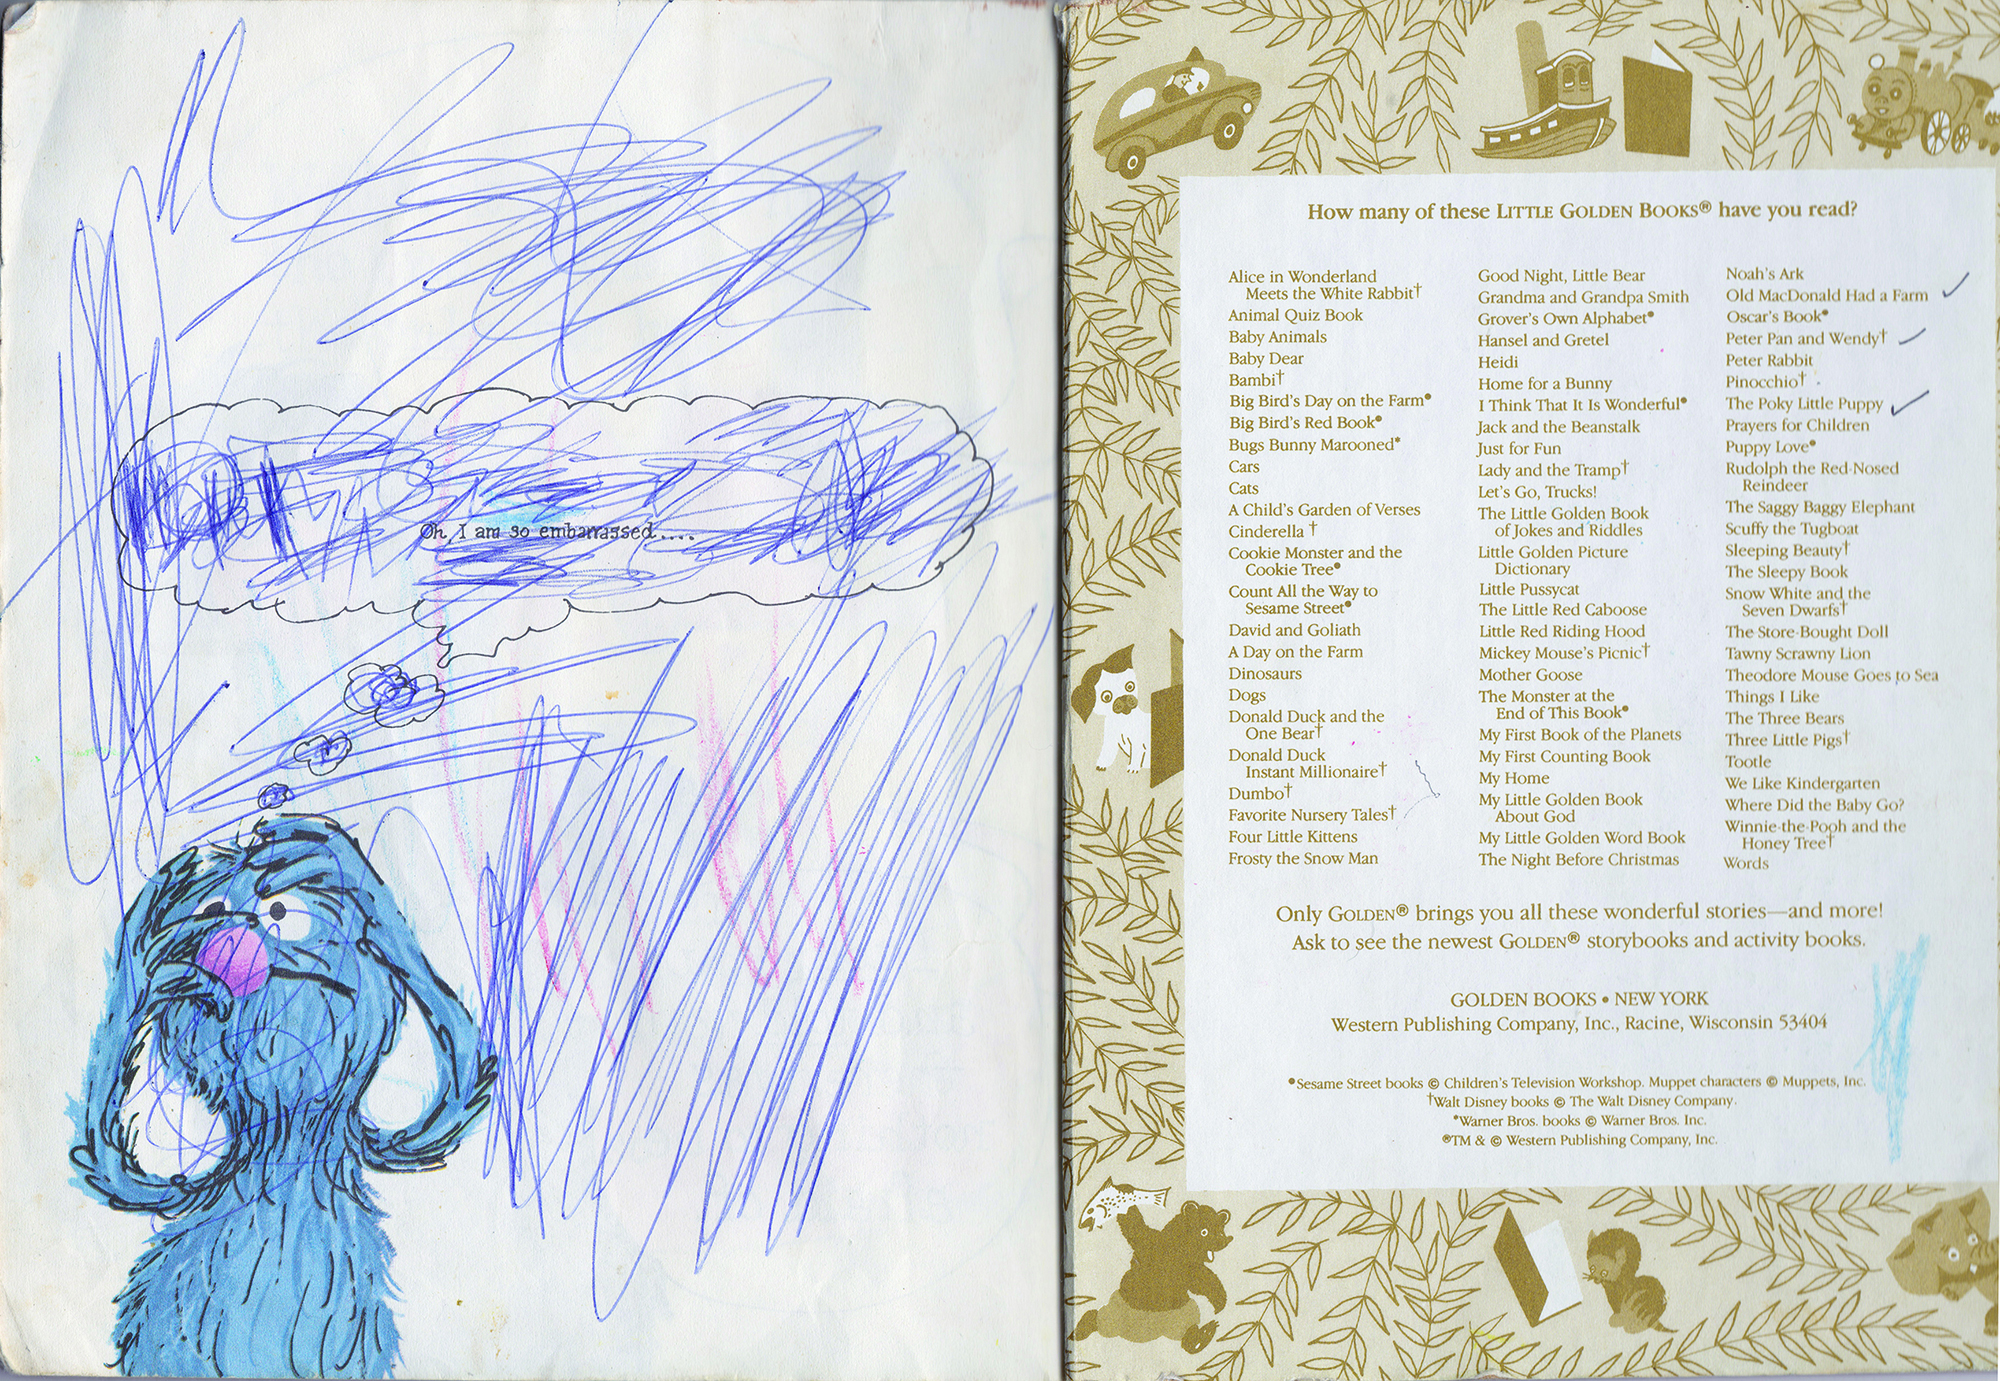 Oh, I am so embarrassed....
How many of these LITTLE GOLDEN BOOKS® have you read?
Alice in Wonderland
Meets the White Rabbit†
Animal Quiz Book
Baby Animals
Baby Dear
Bambi†
Big Bird's Day on the Farm•
Big Bird's Red Book•
Bugs Bunny Marooned*
Cars
Cats
A Child's Garden of Verses
Cinderella †
Cookie Monster and the
Cookie Tree•
Count All the Way to
Sesame Street•
David and Goliath
A Day on the Farm
Dinosaurs
Dogs
Donald Duck and the
One Bear†
Donald Duck
Instant Millionaire†
Dumbo†
Favorite Nursery Tales†
Four Little Kittens
Frosty the Snow Man
Good Night, Little Bear
Grandma and Grandpa Smith
Grover's Own Alphabet•
Hansel and Gretel
Heidi
Home for a Bunny
I Think That It Is Wonderful•
Jack and the Beanstalk
Just for Fun
Lady and the Tramp†
Let's Go, Trucks!
The Little Golden Book
of Jokes and Riddles
Little Golden Picture
Dictionary
Little Pussycat
The Little Red Caboose
Little Red Riding Hood
Mickey Mouse's Picnic†
Mother Goose
The Monster at the
End of This Book•
My First Book of the Planets
My First Counting Book
My Home
My Little Golden Book
About God
My Little Golden Word Book
The Night Before Christmas
Noah's Ark
Old MacDonald Had a Farm
Oscar's Book•
Peter Pan and Wendy†
Peter Rabbit
Pinocchio†
The Poky Little Puppy
Prayers for Children
Puppy Love•
Rudolph the Red-Nosed
Reindeer
The Saggy Baggy Elephant
Scuffy the Tugboat
Sleeping Beauty†
The Sleepy Book
Snow White and the
Seven Dwarfs†
The Store-Bought Doll
Tawny Scrawny Lion
Theodore Mouse Goes to Sea
Things I Like
The Three Bears
Three Little Pigs†
Tootle
We Like Kindergarten
Where Did the Baby Go?
Winnie-the-Pooh and the
Honey Tree†
Words
Only GOLDEN® brings you all these wonderful stories—and more!
Ask to see the newest GOLDEN® storybooks and activity books.
GOLDEN BOOKS • NEW YORK
Western Publishing Company, Inc., Racine, Wisconsin 53404
•Sesame Street books © Children's Television Workshop. Muppet characters © Muppets, Inc.
†Walt Disney books © The Walt Disney Company.
*Warner Bros. books © Warner Bros. Inc.
®TM & © Western Publishing Company, Inc.